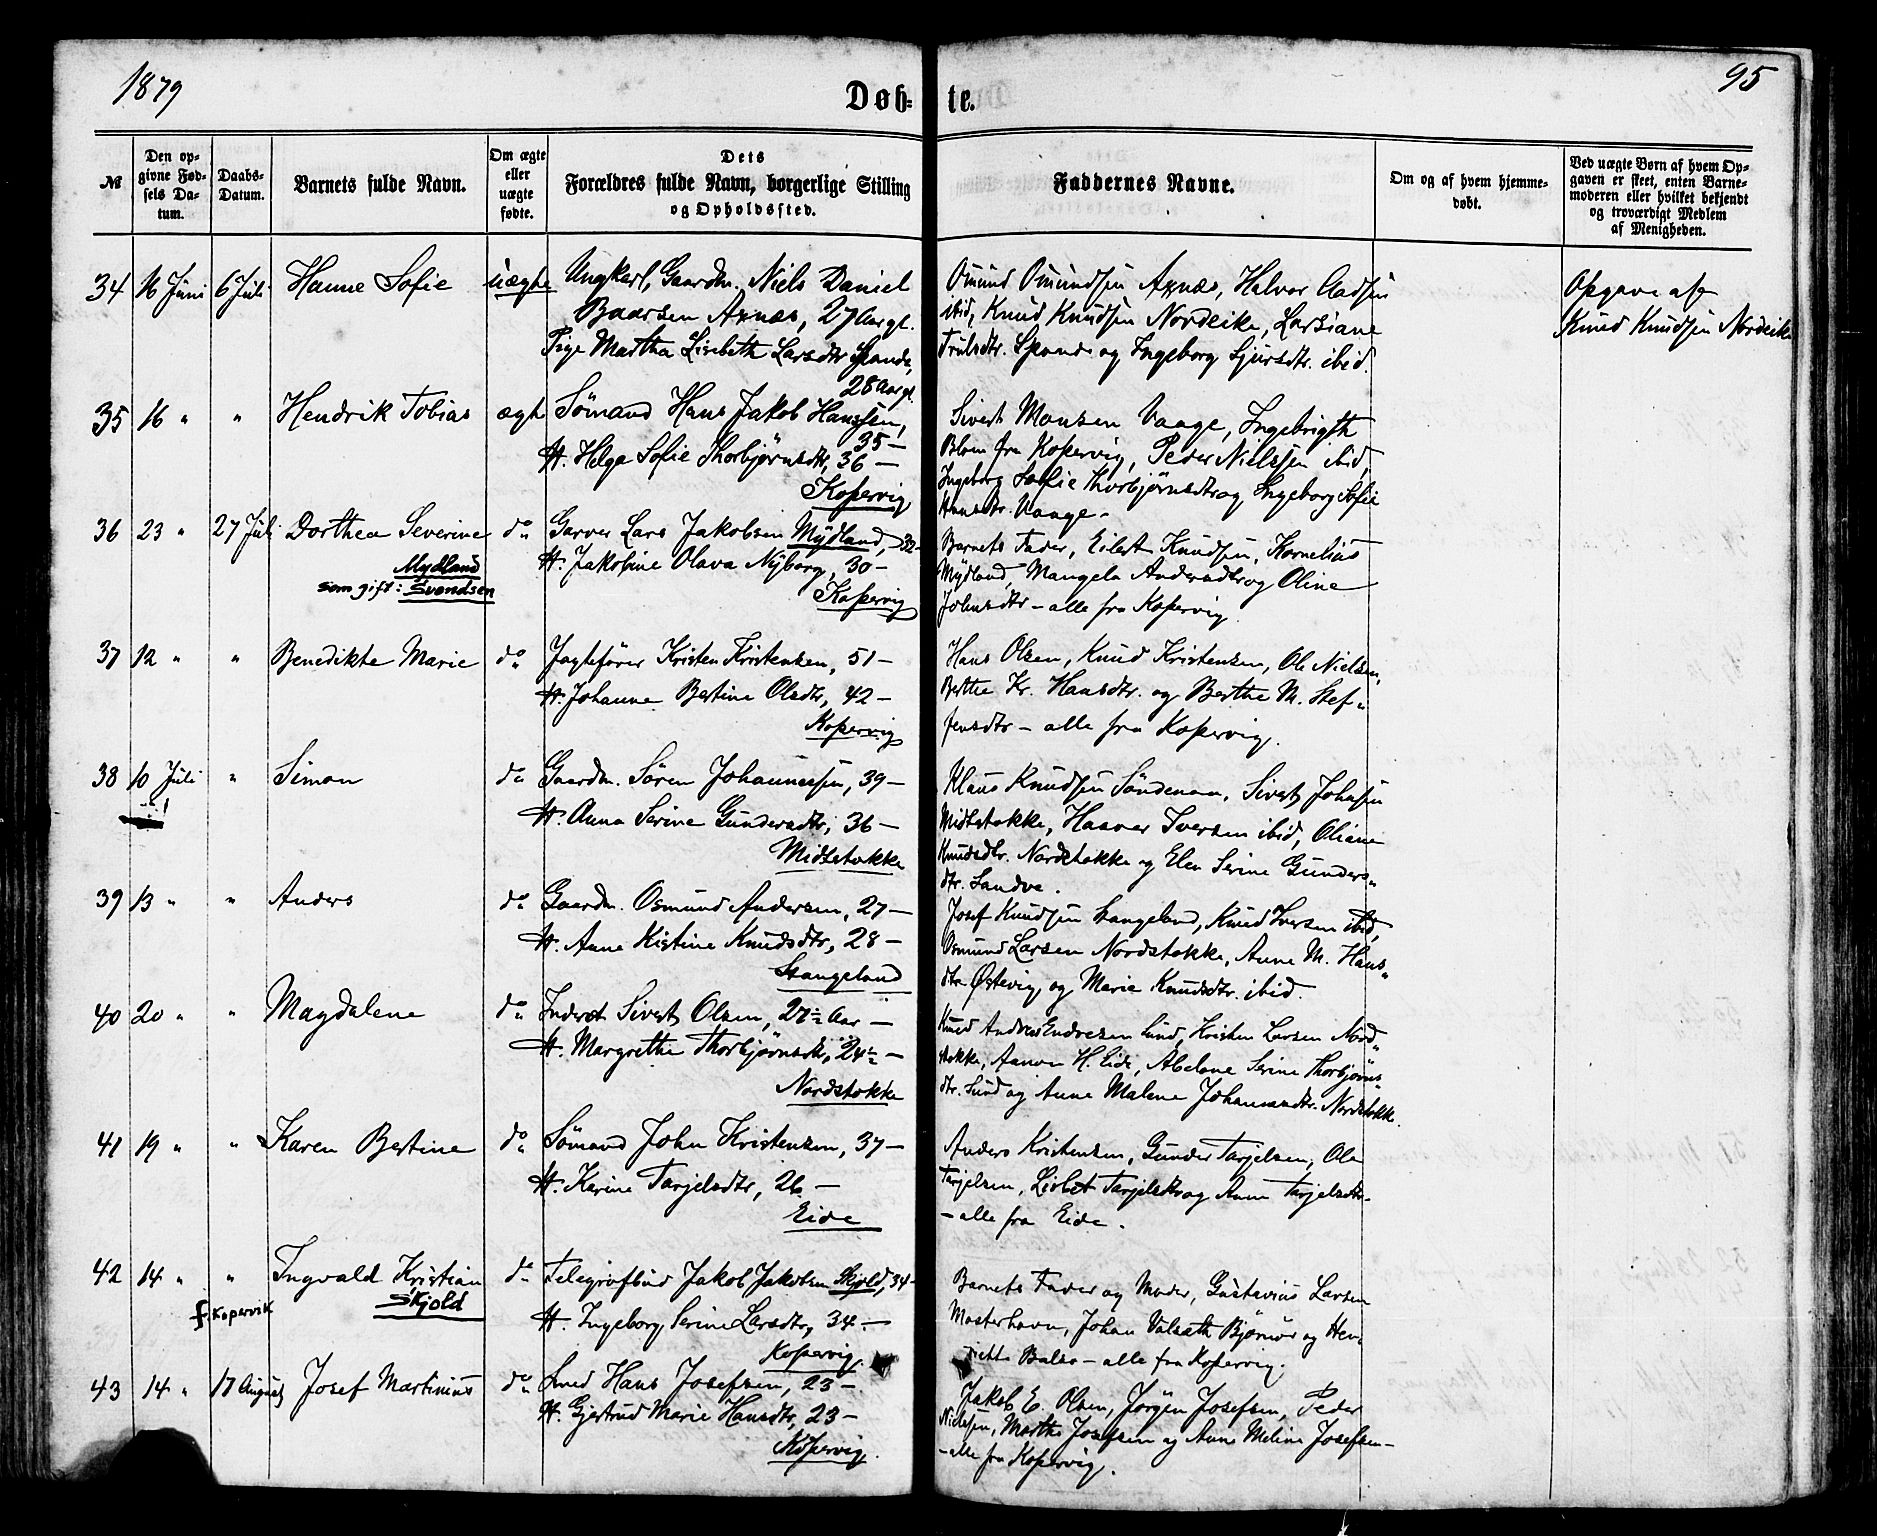 1879
95
Døb-
te.
№
Den op-
givne Fød-
sels Da-
tum.
Daabs-
Datum.
Barnets fulde Navn.
Om ægte
eller
uægte
fødte.
Dets
Forældres fulde Navn, borgerlige Stilling
og Opholdssted.
Faddernes Navne.
Om og af hvem hjemme-
døbt.
Ved uægte Børn af hvem Op-
gaven er skeet, enten Barne-
moderen eller hvilket bekjendt
og troværdigt Medlem
af Menigheden.
34 16 Juni 6 Juli Hanne Sofie uægte
Ungkarl, Gaardm. Niels Daniel
Baarsen Axnæs, 27 Aar gl.
Pige Martha Lisebeth Larsdtr Spande,
28 Aar gl.
Omund Omundsen Axnæs, Halvor Aadsen
ibid, Knud Knudsen Nordeike, Larsiane
Trulsdtr. Spande og Ingeborg Sjursdtr. ibid.
Opgave af
Knud Knudsen Nordeike
35 16 " " Hendrik Tobias ægte
Sømand Hans Jakob Hanssen,
35 —
H. Helga Sofie Thorbjørnsdtr, 36 —
Kopervig
Sivert Monsen Vaage, Ingebrigth
Blom fra Kopervig, Peder Nielssen ibid,
Ingeborg Sofie Thorbjørnsdtr og Ingeborg Sofie
Hansdtr. Vaage.
36 23 " 27 Juli Dorthea Severine do
Mydland
som gift: Svendsen
Garver Lars Jakobsen Mydland, 32 —
H. Jakobine Olava Nyborg, 30 —
Kopervig
Barnets Fader, Eilert Knudsen, Kornelius
Mydland, Mangela Andersdtr og Oline
Johnsdtr — alle fra Kopervig.
37 12 " " Benedikte Marie do
Jagtefører Kristen Kristensen, 51 —
H. Johanne Bertine Olsdtr, 42 —
Kopervig
Hans Olsen, Knud Kristensen, Ole Nielsen,
Berthe Kr. Hansdtr. og Berthe M. Stef-
fensdtr — alle fra Kopervig.
38 10 Juli " Simon do
Gaardm. Søren Johannessen, 39 —
H. Anna Serine Gundersdtr, 36 —
Midtstokke
Klaus Knudsen Søndenaa, Sivert Johnsen
Midtstokke, Haaver Iversen ibid, Oliane
Knudsdtr. Nordstokke og Elen Serine Gunders-
dtr. Sandve.
39 13 " " Anders do
Gaardm. Osmund Andersen, 27 —
H. Anne Kistine Knudsdtr, 28 —
Stangeland
Josef Knudsen Stangeland, Knud Iversen ibid,
Osmund Larsen Nordstokke, Anne M. Hans-
dtr Østevig, og Marie Knudsdtr. ibid.
40 20 " " Magdalene do
Inderst Sivert Olsen, 27½ Aar —
H. Margrethe Thorbjørnsdtr, 24½ —
Nordstokke
Knud Andreas Endresen Lund, Kristen Larsen Nord-
stokke, Aanon H. Eide, Abelone Serine Thorbjørns-
dtr. Lund og Anne Malene Johannesdtr. Nordstokke.
41 19 " " Karen Bertine do
Sømand John Kristensen, 37 —
H. Karine Tarjelsdtr, 26 —
Eide
Anders Kristensen, Gunder Tarjelsen, Ole
Tarjelsen, Lisbet Tarjelsdtr og Anne Tarjelsdtr
— alle fra Eide.
42 14 " " Ingvald Kristian do
Skjold
f. Kopervik
Telegrafbud Jakob Jakobsen Skjold, 34 —
H. Ingeborg Serine Larsdtr, 34. —
Kopervig
Barnets Fader og Moder, Gustavius Larsen
Mosterhavn, Johan Valseth Bjørnør og Hen-
riette Balso — alle fra Kopervig.
43 14 " 17 August Josef Martinius do
Smed Hans Josefsen, 23 —
H. Gjertrud Marie Hansdtr, 23 —
Kopervig.
Jakob E. Olsen, Jørgen Josefsen, Peder
Nielssen, Marthe Josefsen og Anne Meline Josefsen —
— alle fra Kopervig.